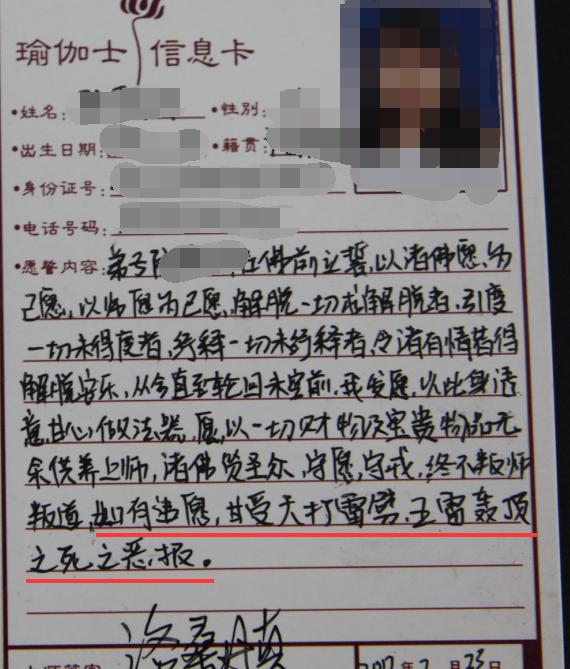 瑜伽士 信息卡
•姓名: •性别:
•出生日期: •籍贯:
•身份证号:
•电话号码:
•愿誓内容: 弟子 在佛前立誓,以诸佛愿为
己愿,以师愿为己愿,解脱一切未解脱者,引度
一切未得度者,终释一切未终释者,令诸有情皆得
解脱安乐,从今直至轮回未空前,我发愿,以此身语
意,甘心做法器,愿以一切财物及宝贵物品无
余供养上师,诸佛贤圣众,守愿,守戒,终不叛师
叛道,如有违愿,甘受天打雷劈,五雷轰顶
之死之恶报。
年 月23日